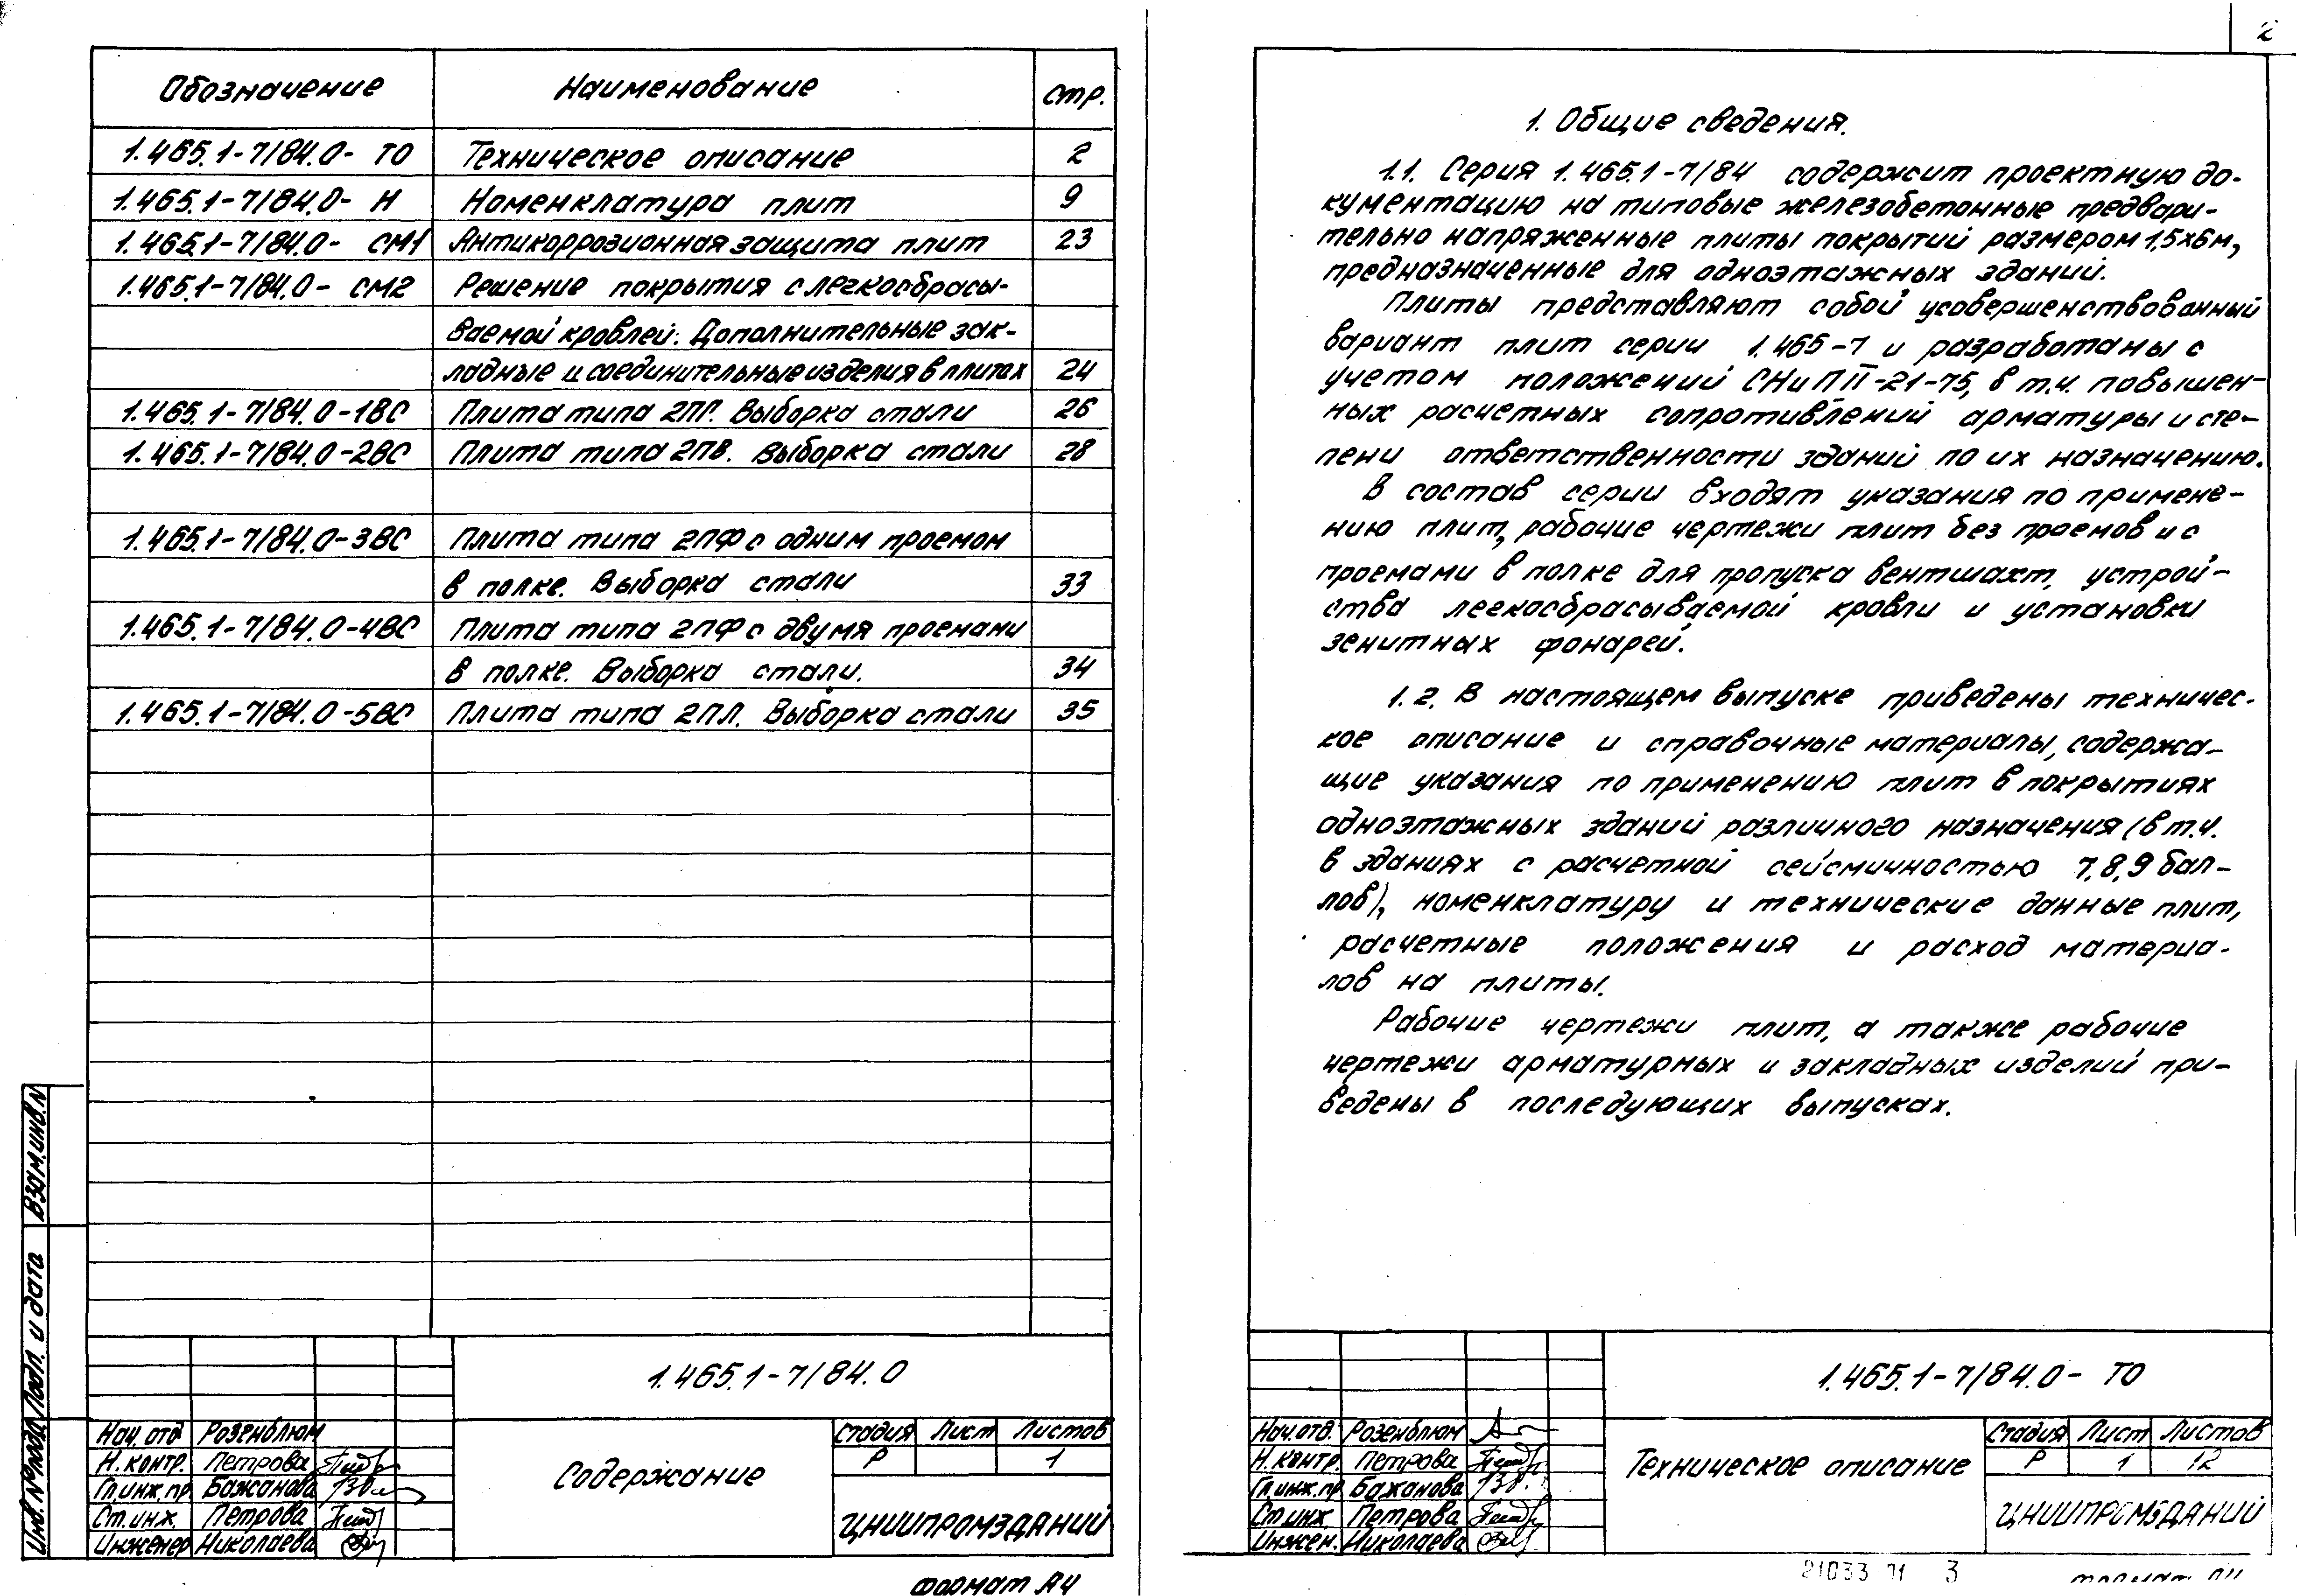 Обозначение Наименование стр.
1.465.1-7/84.0- ТО Техническое описание 2
1.465.1-7/84.0- Н Номенклатура плит 9
1.465.1-7/84.0- СМ1 Антикоррозионная защита плит 23
1.465.1-7/84.0- СМ2 Решение покрытия с легкосбрасы-
ваемой кровлей. Дополнительные зак-
ладные и соединительные изделия в плитах 24
1.465.1-7/84.0-1ВС Плита типа 2ПГ. Выборка стали 26
1.465.1-7/84.0-2ВС Плита типа 2ПВ. Выборка стали 28
1.465.1-7/84.0-3ВС Плита типа 2ПФ с одним проемом
в полке. Выборка стали 33
1.465.1-7/84.0-4ВС Плита типа 2ПФ с двумя проемами
в полке. Выборка стали. 34
1.465.1-7/84.0-5ВС Плита типа 2ПЛ. Выборка стали 35
Взам.инв.N
Подп. и дата
Инв.№подл
1.465.1-7/84.0
Нач.отд Розенблюм
Н.контр. Петрова
Гл.инж.пр Бажанова
Ст.инж. Петрова
Инженер Николаева
Содержание
Стадия Лист Листов
Р 1
ЦНИИПРОМЗДАНИЙ
Формат А4
2
1. Общие сведения.
1.1. Серия 1.465.1-7/84 содержит проектную до-
кументацию на типовые железобетонные предвари-
тельно напряженные плиты покрытий размером 1,5х6м,
предназначенные для одноэтажных зданий.
Плиты представляют собой усовершенствованный
вариант плит серии 1.465-7 и разработаны с
учетом положений СНиП II-21-75, в т.ч. повышен-
ных расчетных сопротивлений арматуры и сте-
пени ответственности зданий по их назначению.
В состав серии входят указания по примене-
нию плит, рабочие чертежи плит без проемов и с
проемами в полке для пропуска вентшахт, устрой-
ства легкосбрасываемой кровли и установки
зенитных фонарей.
1.2. В настоящем выпуске приведены техничес-
кое описание и справочные материалы, содержа-
щие указания по применению плит в покрытиях
одноэтажных зданий различного назначения (в т.ч.
в зданиях с расчетной сейсмичностью 7,8,9 бал-
лов), номенклатуру и технические данные плит,
расчетные положения и расход материа-
лов на плиты.
Рабочие чертежи плит, а также рабочие
чертежи арматурных и закладных изделий при-
ведены в последующих выпусках.
1.465.1-7/84.0- ТО
Нач.отд. Розенблюм
Н.контр. Петрова
Гл.инж.пр Бажанова
Ст.инж. Петрова
Инжен. Николаева
Техническое описание
Стадия Лист Листов
Р 1 12
ЦНИИПРОМЗДАНИЙ
3